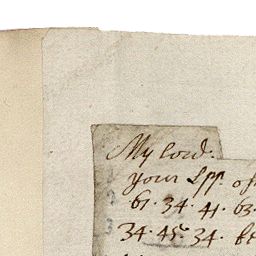 My Lord.
your Lpp. of
61. 34. 41. 63.
34. 45. 34. be